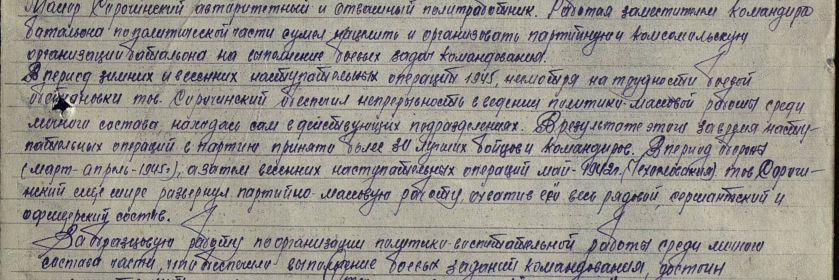 Майор Сирочинский авторитетный и отважный политработник. Работая заместителем командира
батальона по политической части сумел нацелить и организовать партийную и комсомольскую
организации батальона на выполнение боевых задач командования.
В период зимних и весенних наступательных операций 1945, несмотря на трудности боевой
обстановки тов. Сирочинский обеспечил непрерывность в ведении политико-массовой работы среди
личного состава, находясь сам в действующих подразделениях. В результате этого за время насту-
пательных операций в партию принято более 30 лучших бойцов и командиров. В период обороны
(март-апрель-1945г.), а затем весенних наступательных операций май-1945г. (Чехословакия) тов. Сирочи-
нский еще шире развернул партийно-массовую работу, охватив ею весь рядовой, сержантский и
офицерский состав.
За образцовую работу по организации политико-воспитательной работы среди личного
состава части, что обеспечило выполнение боевых заданий командования, достоин